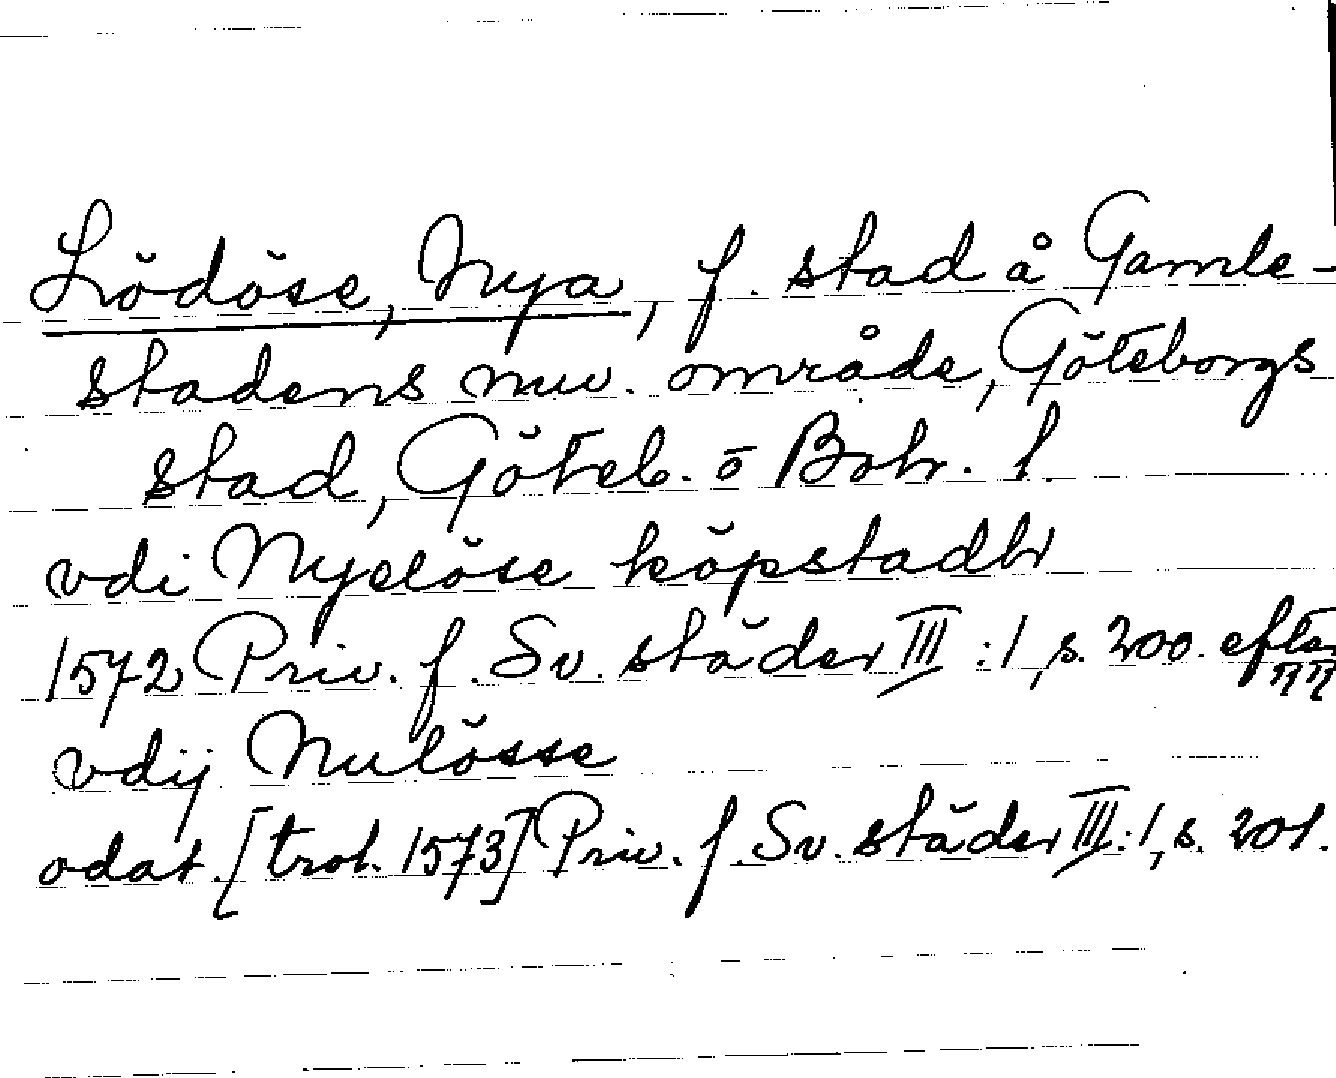 Lödöse, Nya, f. stad å Gamle-
stadens nuv. område, Göteborgs
stad, Göteb. o Boh. l.
vdi Nyelöse köpstadh
1572 Priv. f. Sv. städer III:1, s. 200. efter
vdij Nulösse
odat. [trol. 1573] Priv. f. Sv. städer III:1, s. 201.